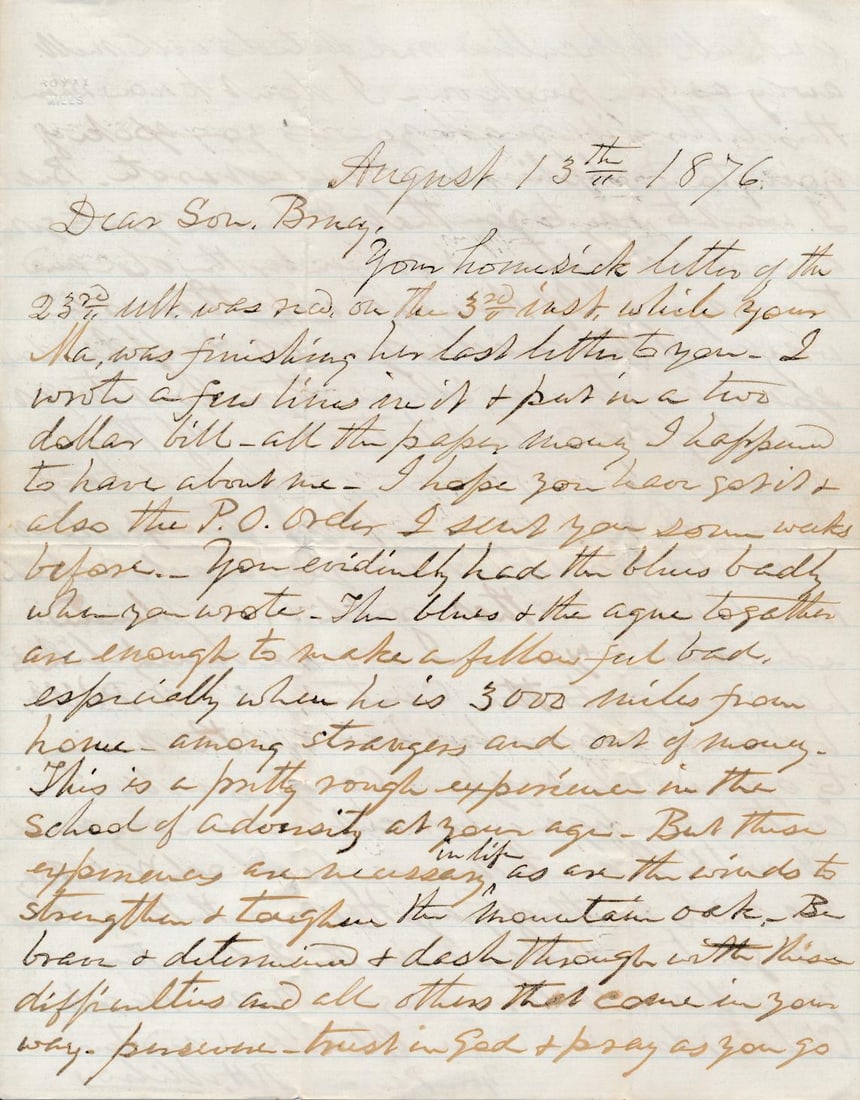 August 13th 1876.
Dear Son.
Your homesick letter of the
23rd ult. was recd. on the 3rd inst. which your
Ma, was finishing her last letter to you - I
wrote a few lines in it & put in a two
dollar bill - all the paper money I happened
to have about me - I hope you have got it &
also the P.O. Order I sent you some weeks
before. - You evidently had the blues badly
when you wrote - The blues & the ague together
are enough to make a fellow feel bad,
especially when he is 3000 miles from
home - among strangers and out of money -
This is a pretty rough experience in the
school of adversity at your age - But these
experiences are necessary in life, as are the winds to
strengthen & toughen the mountain oak, - Be
brave & determined & dash through with these
difficulties and all others that come in your
way - persevere - trust in God & pray as you go